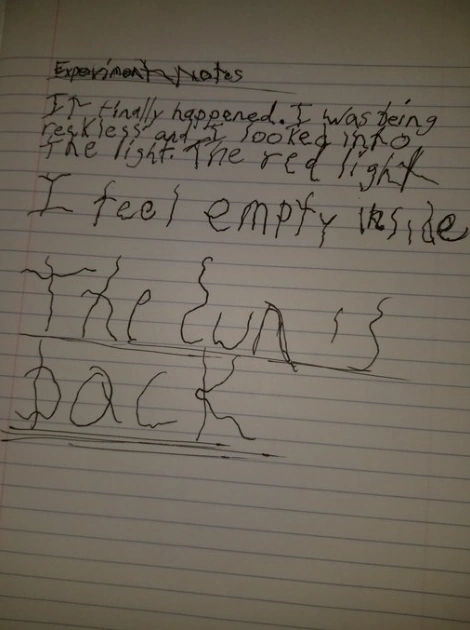 Experiment Notes
It finally happened. I was being
reckless and I looked into
the light. The red light
I feel empty inside
The Sun is
BACK